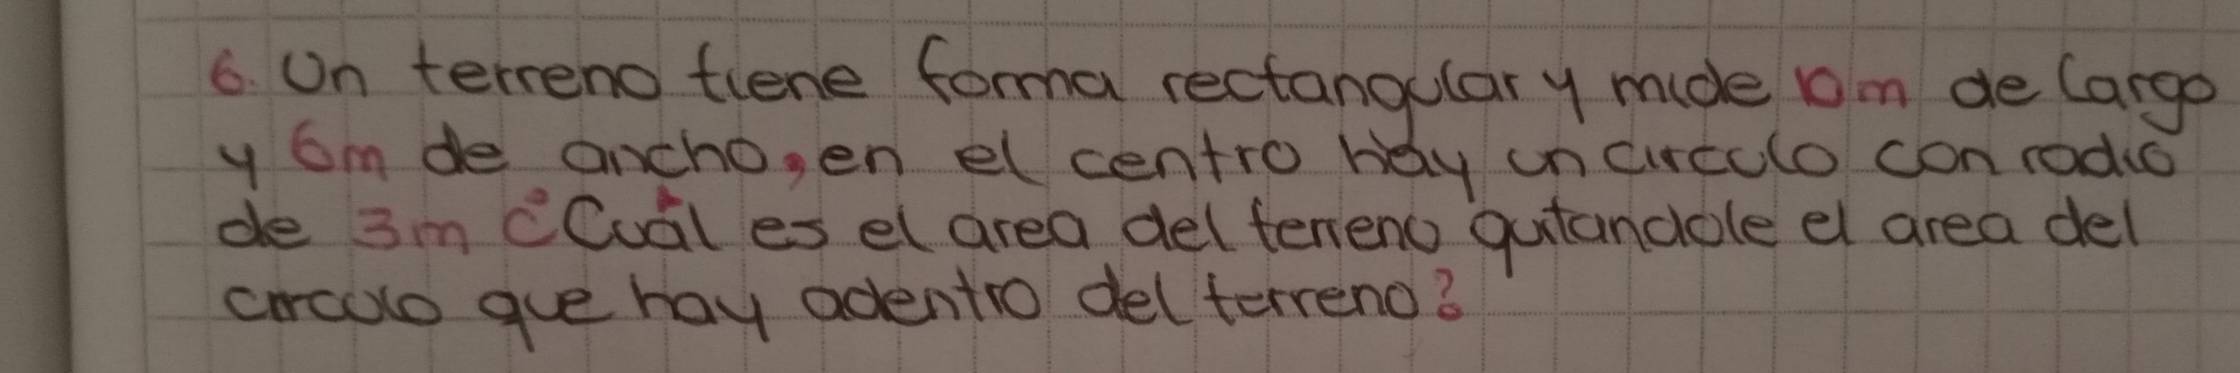 6. Un terreno tiene forma rectangular y mide 10m de largo
y 6m de ancho, en el centro hay un circulo con radio
de 3m ¿Cuál es el area del terreno quitandole el area del
circulo que hay adentro del terreno?